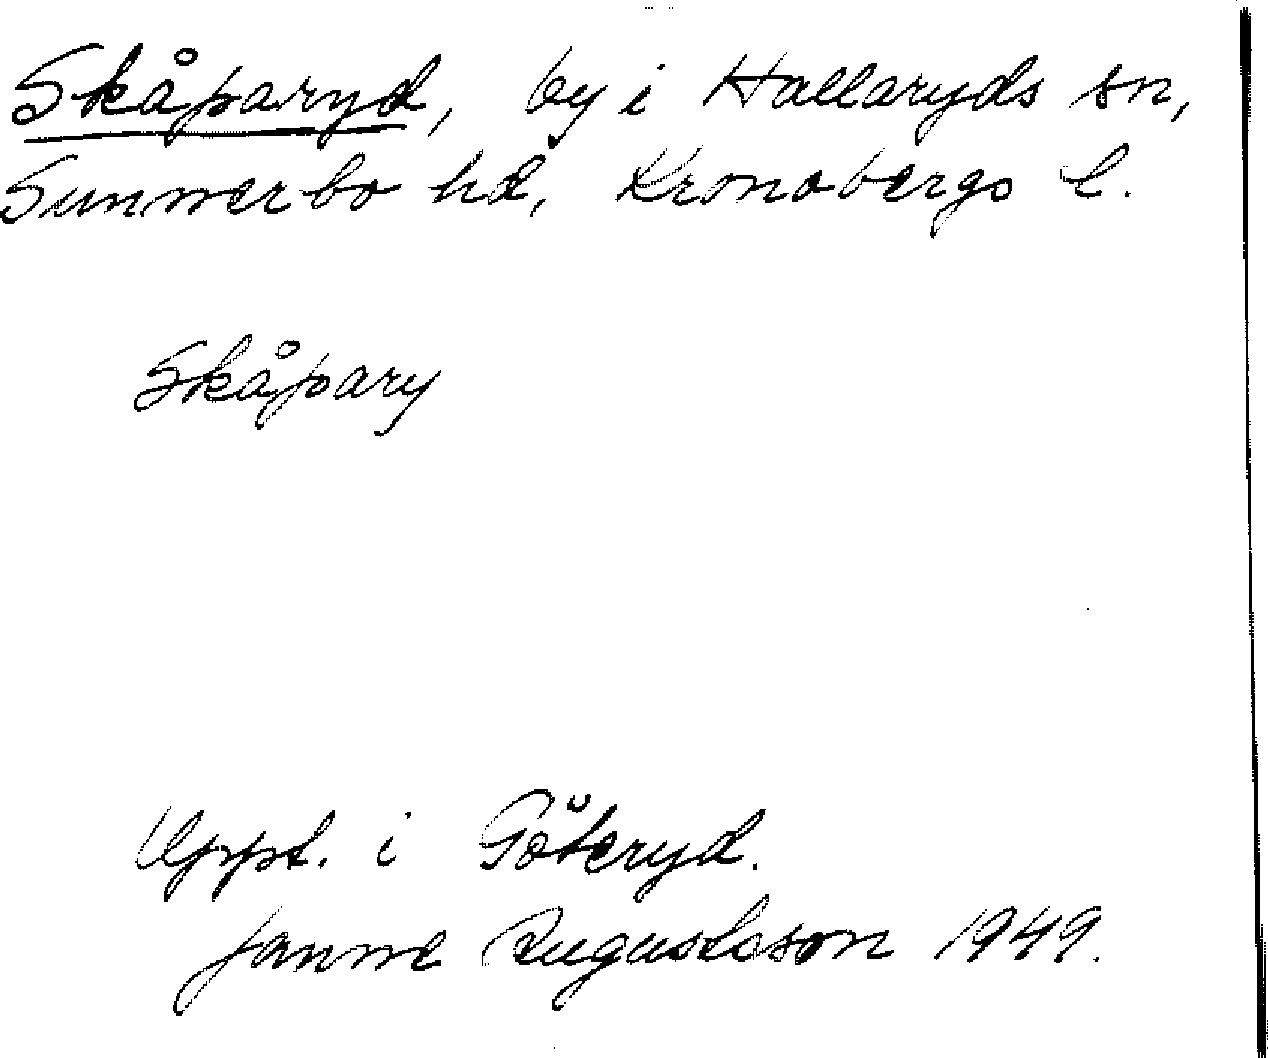 Skåparyd, by i Hallaryds sn,
Sunnerbo hd, Kronobergs l.
Skåpary
Uppt. i Göteryd.
Janne Augustsson 1949.